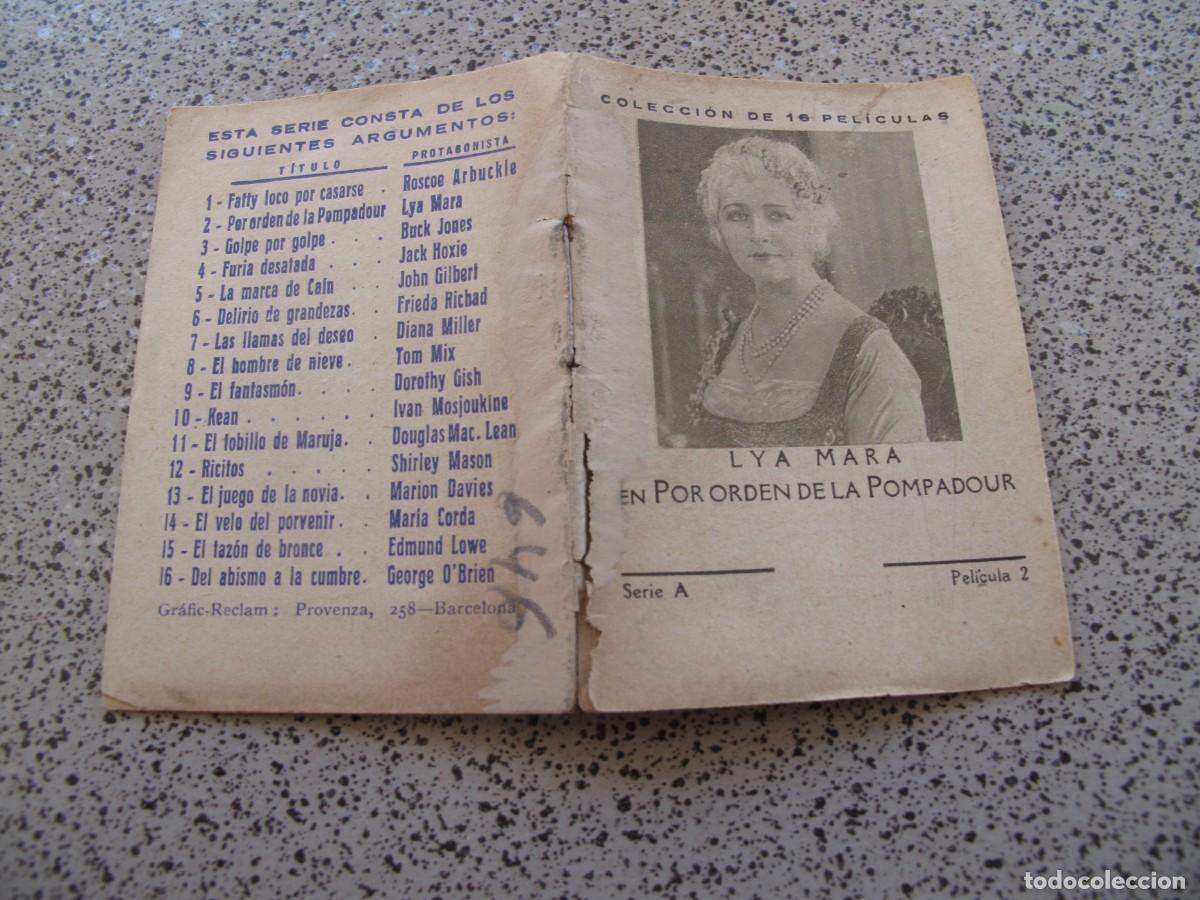 ESTA SERIE CONSTA DE LOS
SIGUIENTES ARGUMENTOS:
TÍTULO PROTAGONISTA
1 - Fatty loco por casarse . Roscoe Arbuckle
2 - Por orden de la Pompadour Lya Mara
3 - Golpe por golpe . . . Buck Jones
4 - Furia desatada . . . . Jack Hoxie
5 - La marca de Caín . . . John Gilbert
6 - Delirio de grandezas. . Frieda Richad
7 - Las llamas del deseo . Diana Miller
8 - El hombre de nieve. . Tom Mix
9 - El fantasmón. . . . . Dorothy Gish
10 - Kean . . . . . . Ivan Mosjoukine
11 - El tobillo de Maruja. . Douglas Mac. Lean
12 - Ricitos . . . . . Shirley Mason
13 - El juego de la novia. . Marion Davies
14 - El velo del porvenir. . María Corda
15 - El tazón de bronce . . Edmund Lowe
16 - Del abismo a la cumbre. George O'Brien
Gráfic-Reclam: Provenza, 258—Barcelona
646
COLECCIÓN DE 16 PELÍCULAS
LYA MARA
EN POR ORDEN DE LA POMPADOUR
Serie A Película 2
todocoleccion